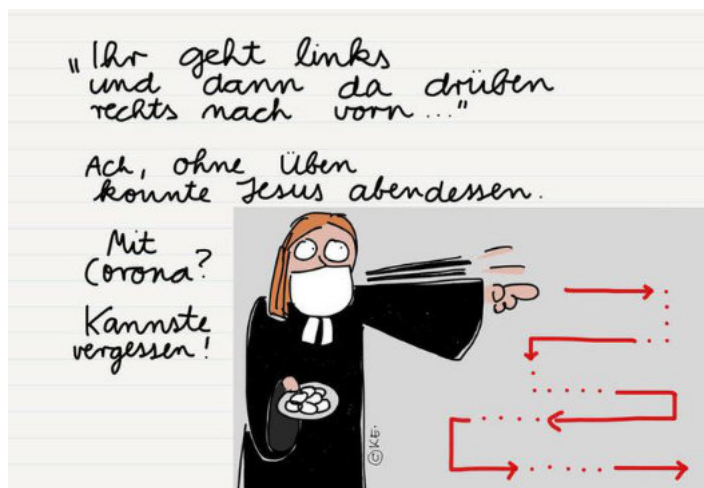 „Ihr geht links
und dann da drüben
rechts nach vorn ..."
Ach, ohne Üben
konnte Jesus abendessen.
Mit
Corona?
Kannste
vergessen!
©KE.